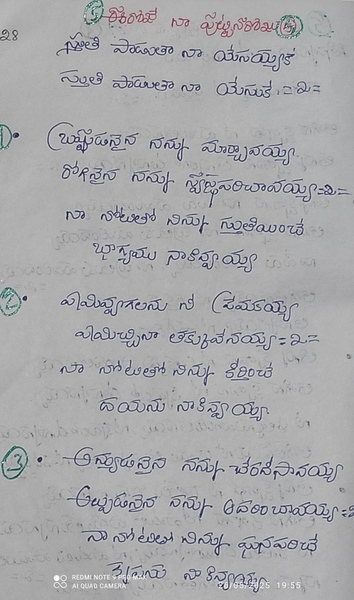 28
ఈరోజే నా పుట్టినరోజు
స్తుతి పాడుతా నా యేసయ్యకే
స్తుతి పాడుతా నా యేసుకే =2=
1
భ్రష్టుడనైన నన్ను మార్చావయ్య
రోగినైన నన్ను స్వస్థపరిచావయ్య =2=
నా నోటితో నిన్ను స్తుతియించే
భాగ్యము నాకివ్వయ్య
2
ఏమివ్వగలను నీ ప్రేమకయ్య
ఏమిచ్చినా తక్కువేనయ్య =2=
నా నోటితో నిన్ను కీర్తించే
దయను నాకివ్వయ్య
3
అన్యుడనైన నన్ను చేరదీసావయ్య
అల్పుడనైన నన్ను ఆదరించావయ్య =2
నా నోటితో నిన్ను ఘనపరిచే
కృపను నాకివ్వయ్య
REDMI NOTE 9 PRO MAX
AI QUAD CAMERA
/05/2025 19:55